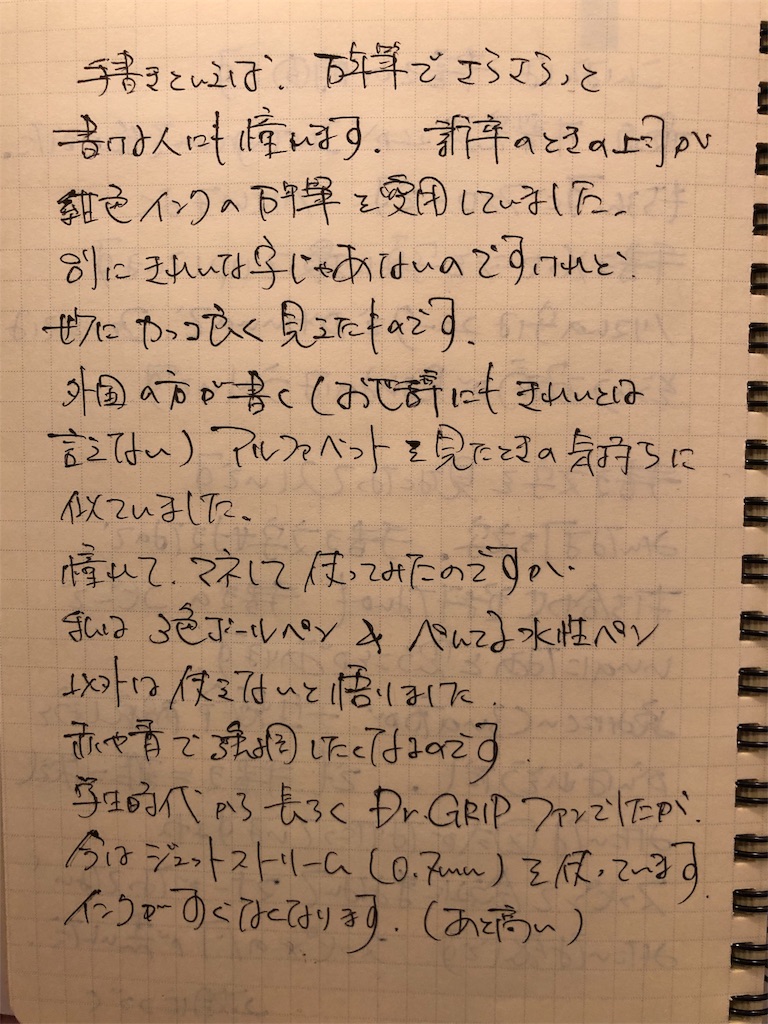 手書きといえば、万年筆でさらさらっと
書ける人にも憧れます。 新卒のときの上司が
紺色インクの万年筆を愛用していました。
別にきれいな字じゃあないのですけれど、
妙にかっこ良く見えたものです。
外国の方が書く(お世辞にもきれいとは
言えない)アルファベットを見たときの気持ちに
似ていました。
憧れて、マネして使ってみたのですが、
私は3色ボールペン&ぺんてる水性ペン
以外は使えないと悟りました。
赤や青で強調したくなるのです。
学生時代から長らくDr.GRIPファンでしたが、
今はジェットストリーム(0.7mm)を使っています。
インクがすぐなくなります。(あと高い)